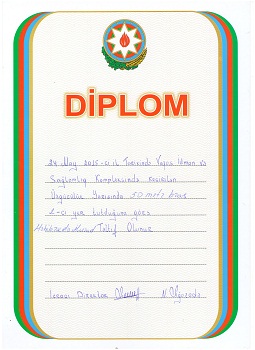 DİPLOM
24 May 2015-ci il Tarixində Yaşıl İdman və
Sağlamlıq Kompleksində keçirilən
Üzgüçülük Yarışında 50 metr brass
2-ci yer tutduğuna görə
Təltif Olunur
İcraçı Direktor N.